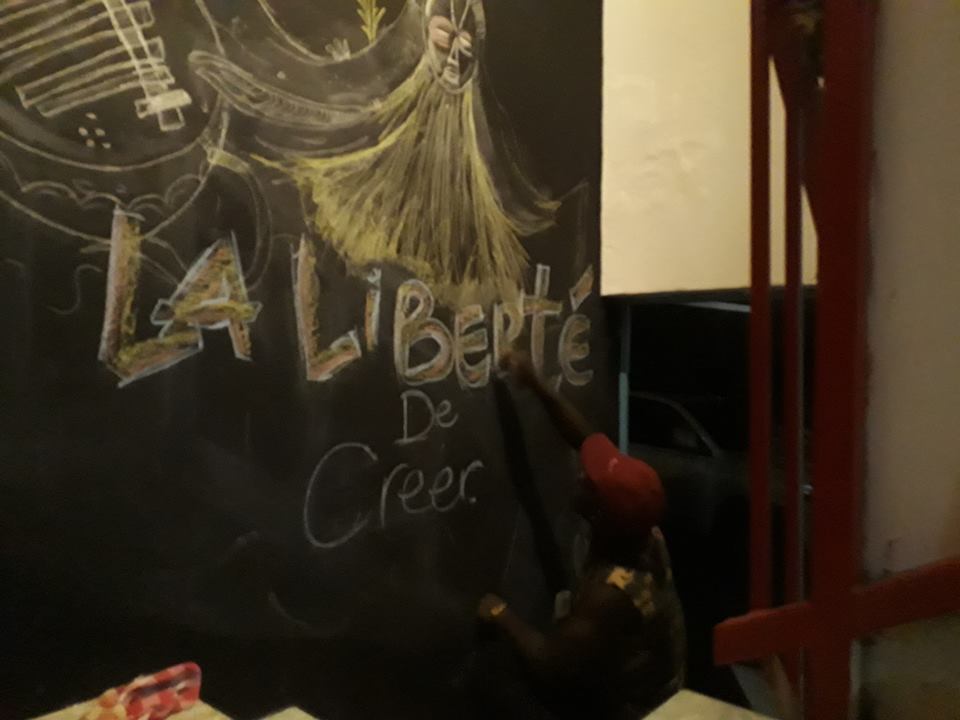 LA LiBERTÉ
De
Creer.